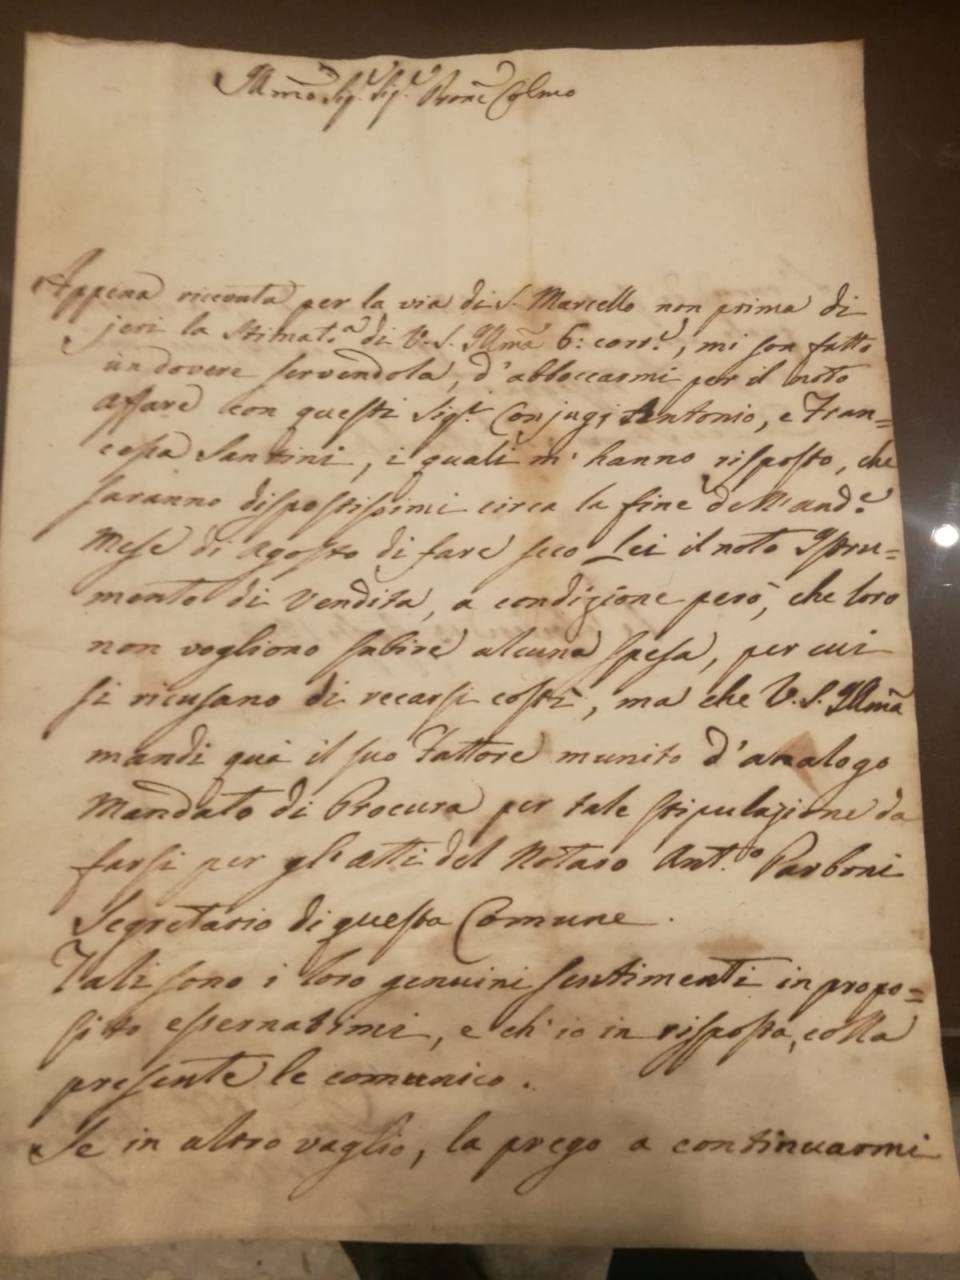 Illmo Sig.r Sig.r Proñe Colmo
Appena ricevuta per la via di S. Marcello non prima di
jeri la Stimat.a di V. S. Illm̃a 6: corr.e, mi son fatto
un dovere servendola, d'abboccarmi per il noto
affare con questi Sig.ri Conjugj Antonio, e Fran=
cesca Santini, i quali m'hanno risposto, che
saranno dispostissimi circa la fine dell'and.e
Mese di Agosto di fare seco Lei il noto Istru=
mento di Vendita, a condizione però, che loro
non vogliono subire alcuna spesa, per cui
si ricusano di recarsi costì, ma che V. S. Illm̃a
mandi quà il suo Fattore munito d'analogo
Mandato di Procura per tale stipulazione da
farsi per gl'atti del Notaro Ant.o Parboni
Segretario di questa Comune.
Tali sono i loro genuini sentimenti in propo=
sito esternatimi, e ch'io in risposta, colla
presente le comunico.
Se in altro vaglio, la prego a continuarmi